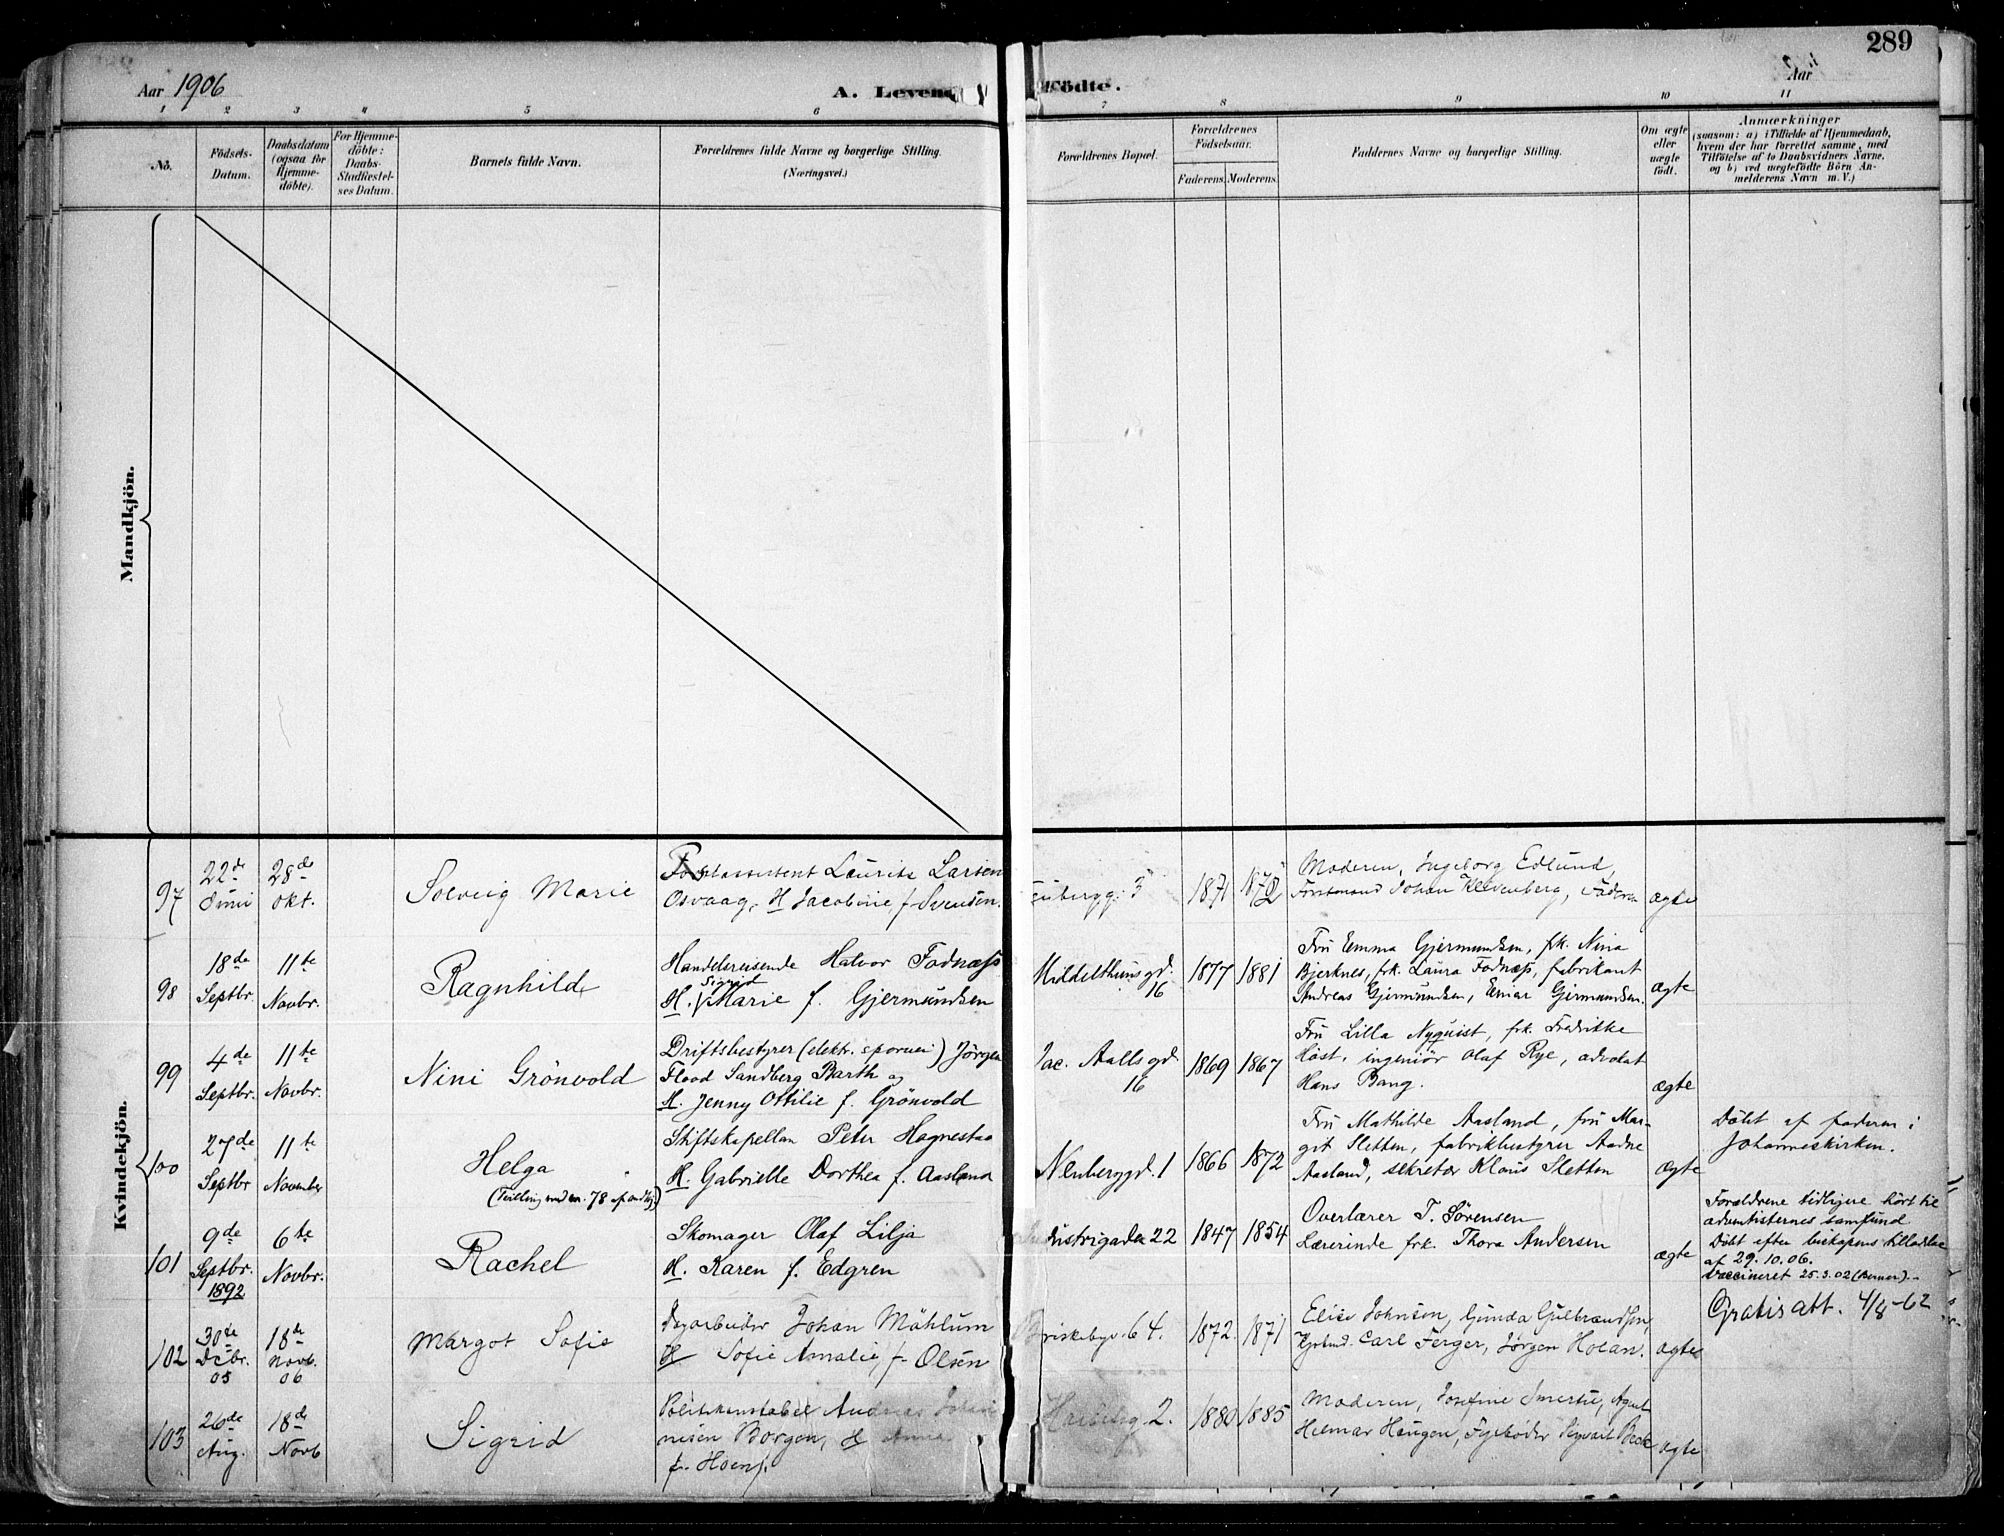 289
Aar 1906
A. Levende Födte.
Aar
1 2 3 4 5 6 7 8 9 10 11
No.
Födsels-
Datum.
Daabsdatum
(ogsaa for
Hjemme-
döbte).
For Hjemme-
döbte:
Daabs-
Stadfæstel-
ses Datum.
Barnets fulde Navn.
Forældrenes fulde Navne og borgerlige Stilling.
(Næringsvei.)
Forældrenes Bopæl.
Forældrenes
Födselsaar.
Faderens. Moderens.
Faddernes Navne og borgerlige Stilling.
Om ægte
eller
uægte
født.
Anmærkninger
(saasom: a) i Tilfælde af Hjemmedaab,
hvem der har forrettet samme, med
Tilföielse af to Daabsvidners Navne.
og b) ved uægtefödte Börn An-
melderens Navn m. V.)
Mandkjön.
Kvindekjön.
97
22de
Juni
28de
Okt.
Solveig Marie
Postassistent Laurits Larsen
Osvaag, H Jacobine f. Svensen.
1871 1872
Moderen, Ingeborg Edlund,
Johan Klevenberg, Faderen
ægte
98
18de
Septbr.
11te
Novbr.
Ragnhild
Handelsreisende Halvor Fodnæss
Sigrid
H. Marie f. Gjermundsen
Middelthunsgd.
16
1877 1881
Fru Emma Gjermundsen, frk. Nina
Bjerknes, frk. Laura Fodnæss, fabrikant
Andreas Gjermundsen, Einar Gjermundsen.
ægte
99
4de
Septbr.
11te
Novbr.
Nini Grönvold
Driftsbestyrer (elektr. sporvei) Jörgen
Flood Sandberg Barth og
H. Jenny Ottilie f. Grönvold
Jac. Aalls gd.
16
1869 1867
Fru Lilla Nyquist, frk. Fredrikke
Höst, ingeniör Olaf Rye, advokat
Hans Bang.
ægte
100
27de
Septbr
11te
November
Helga
(Tvilling med nr. 78 )
Stiftskapellan Peter Hognestad
H. Gabrielle Dorthea f. Aasland
Neuberggd. 1
1866 1872
Fru Mathilde Aasland, fru Mar-
git Sletten, fabrikbestyrer Aadne
Aasland, sekretær Klaus Sletten
ægte
Döbt af faderen i
Johanneskirken.
101
9de
Septbr.
1892
6te
Novbr.
Rachel
Skomager Olaf Lilja
H. Karen f. Edgren
Industrigaden 22
1847 1854
Overlærer T. Sörensen
Lærerinde frk. Thora Andersen
ægte
Forældrene tidligere hört til
adventisternes samfund
Döbt efter biskopens tilladelse
af 29.10.06.
Vaccineret 25.3.02
102
30de
Dcbr.
05
18de
Novb.
06
Margot Sofie
Dagarbeider Johan Mæhlum
H Sofie Amalie, f. Olsen
Briskebyv. 64.
1872. 1871
Elise Johnsen, Gunda Gulbrandsen,
Carl Ferger, Jørgen Holan.
ægte
Gratis att. 4/8-62
103
26de
Aug.
18de
Novb
Sigrid
Politikonstabel Andreas Johan-
nesen Borgen, H Anna
f. Hoen.
2.
1880 1885
Moderen, Josefine Agent
Helmar Haugen, Sigvart Beck
ægte